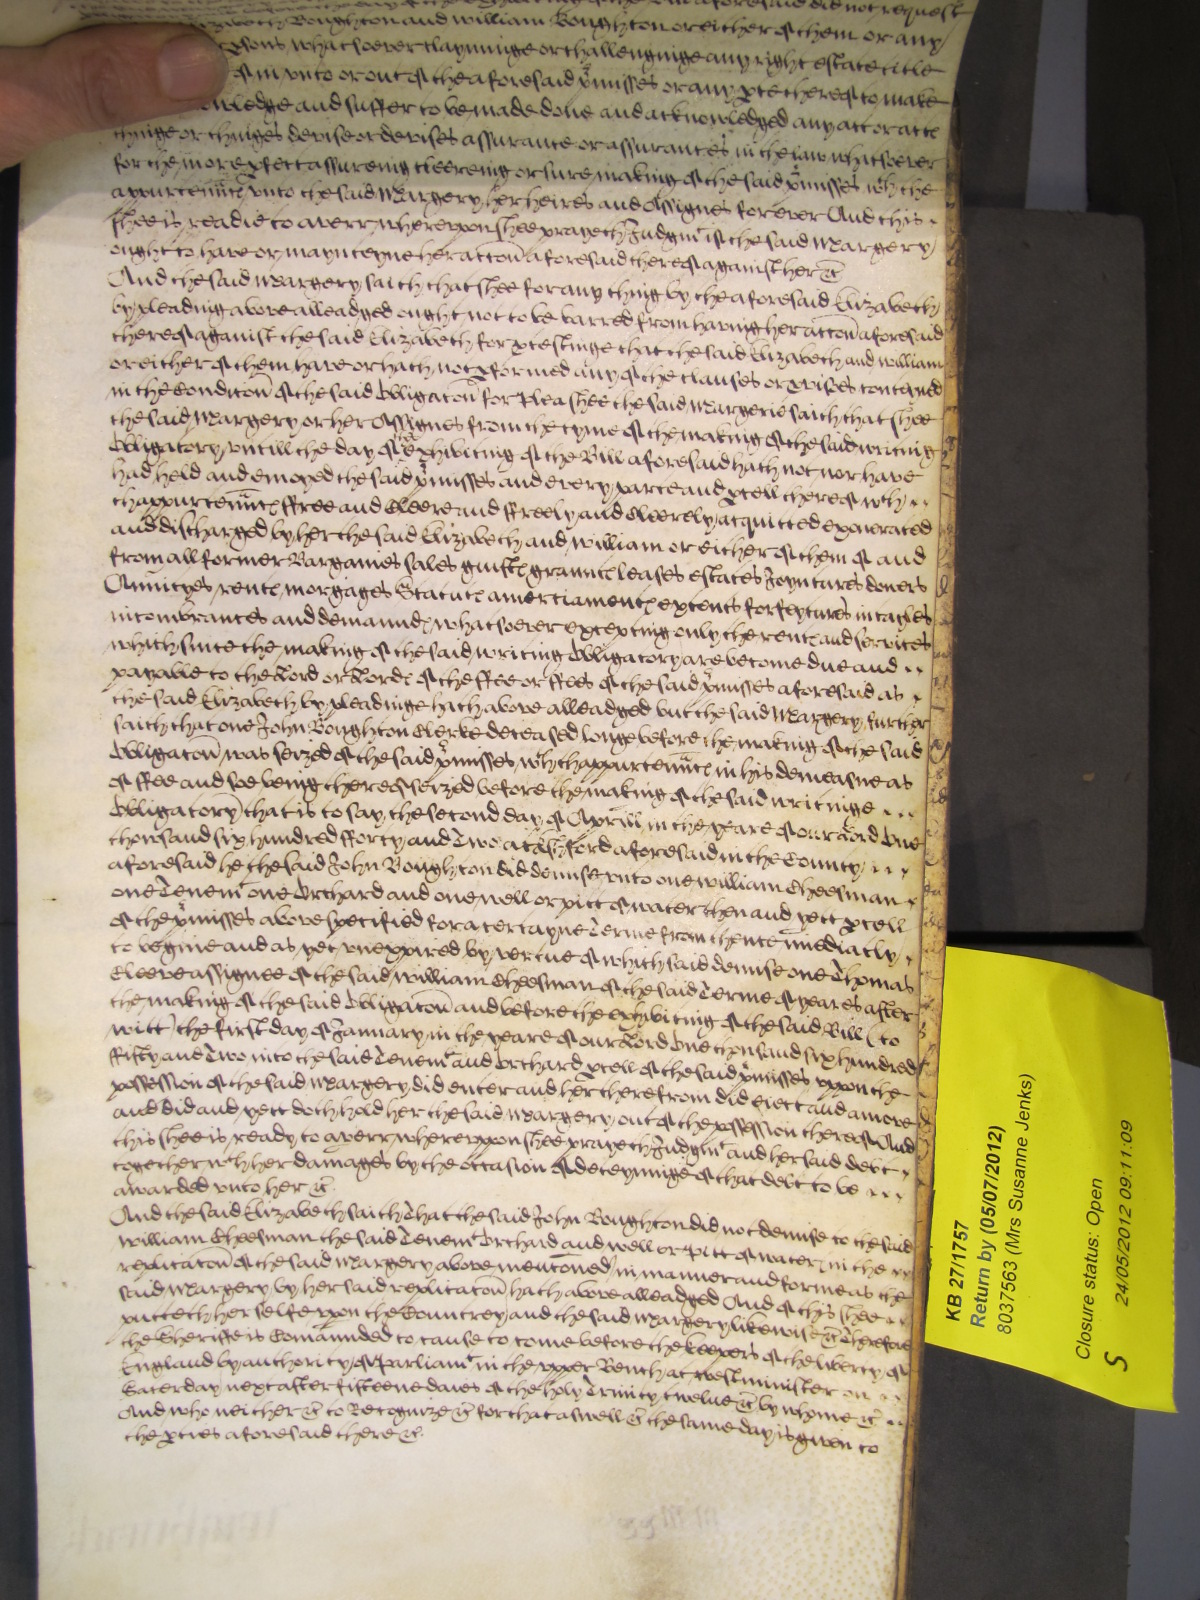 aforesaid did not request
Elizabeth Boughton and william Boughton or either of them or any
whatsoever clayminge or challenginge any right estate title
of in unto or out of the aforesaid p̃misses or any pte thereof to make
knowledge and suffer to be made done and acknowledged any act or acte
thinge or thinges devise or devises assurance or assurances in the law whatsoever
for the more pfect assureing cleereing or sure making of the said p̃misses wth the
appurtenñces unto the said Margery her heires and Assignes for ever And this
shee is readie to averr whereupon shee prayeth Judgmt if the said Margery
ought to have or maynteyne her accon̄ aforesaid thereof against her &c̄
And the said Margery saith that shee for any thing by the aforesaid Elizabeth
by pleading above alleadged ought not to be barred from having her accon̄ aforesaid
thereof against the said Elizabeth for ptestinge that the said Elizabeth and william
or either of them have or hath not pformed any of the clauses or pvisoes conteyned
in the Condicon̄ of the said Obligacon̄ for Plea shee the said Margerie saith that shee
the said Margery or her Assignes from the tyme of the making of the said writing
Obligatory untill the day of the exhibiting of the Bill aforesaid hath not nor have
had held and enioyed the said p̃misses and every parte and pcell thereof wth
thappurtenñces ffree and Cleere and ffreely and Cleerely acquitted exonerated
and discharged by her the said Elizabeth and william or either of them of and
from all former Bargaines sales guiftes grauntes leases estates Joyntures dowers
Annuityes rentes morgages Statutes amerciamentes extents forfeytures intayles
incombrances and demaundes whatsoever excepting only the rentes and services
which since the making of the said writing Obligatory are become due and
payable to the Lord or Lordes of the ffee or ffees of the said p̃misses aforesaid as
the said Elizabeth by pleadinge hath above alleadged but the said Margery further
saith that one John Boughton Clerke deceased longe before the making of the said
Obligacon̄ was seized of the said p̃misses wth thappurtenñces in his demeasne as
of ffee and soe being thereof seized before the making of the said writinge
Obligatory that is to say the second day of Aprill in the yeare of our Lord One
thousand six hundred fforty and Two at Ashford aforesaid in the County
aforesaid he the said John Boughton did demise unto one william Cheesman
one Tenemt one Orchard and one well or pitt of water then and yett pcell
of the p̃misses above specified for a certayne Terme from thence imediatly
to begine and as yet unexpired by vertue of which said demise one Thomas
Cleeve assignee of the said william Cheesman of the said Terme of yeares after
the making of the said Obligacon̄ and before the exhibiting of the said Bill (to
witt) the first day of January in the yeare of our Lord One thousand six hundred
ffifty and Two into the said Tenemt and Orchard pcell of the said p̃misses uppon the
possession of the said Margery did enter and her therefrom did eiect and amove
and did and yett doth hold her the said Margery out of the possession thereof And
this shee is ready to averr whereuppon shee prayeth Judgmt and her said debt
together wth her damages by the occasion of deteyninge of that debt to be
awarded unto her &c̄
And the said Elizabeth saith That the said John Boughton did not demise to the said
william Cheesman the said Tenemt Orchard and well or pitt of water in the
replicacon̄ of the said Margery above mencōned in manner and forme as the
said Margery by her said replicacon̄ hath above alleadged And of this shee
putteth her selfe upon the Countrey and the said Margery likewise &c̄ Therefore
the Sheriffe is Comaunded to cause to come before the keepers of the liberty of
England by authority of Parliamt in the upper Bench at westminister on
Saterday next after fifteene daies of the holy Trinity twelve &c̄ by whome &c̄
And who neither &c̄ to Recognize &c̄ for that aswell &c̄ the same day is given to
the pties aforesaid there &c̄
KB 27/1757
Return by (05/07/2012)
8037563 (Mrs Susanne Jenks)
Closure status: Open
S 24/05/2012 09:11:09